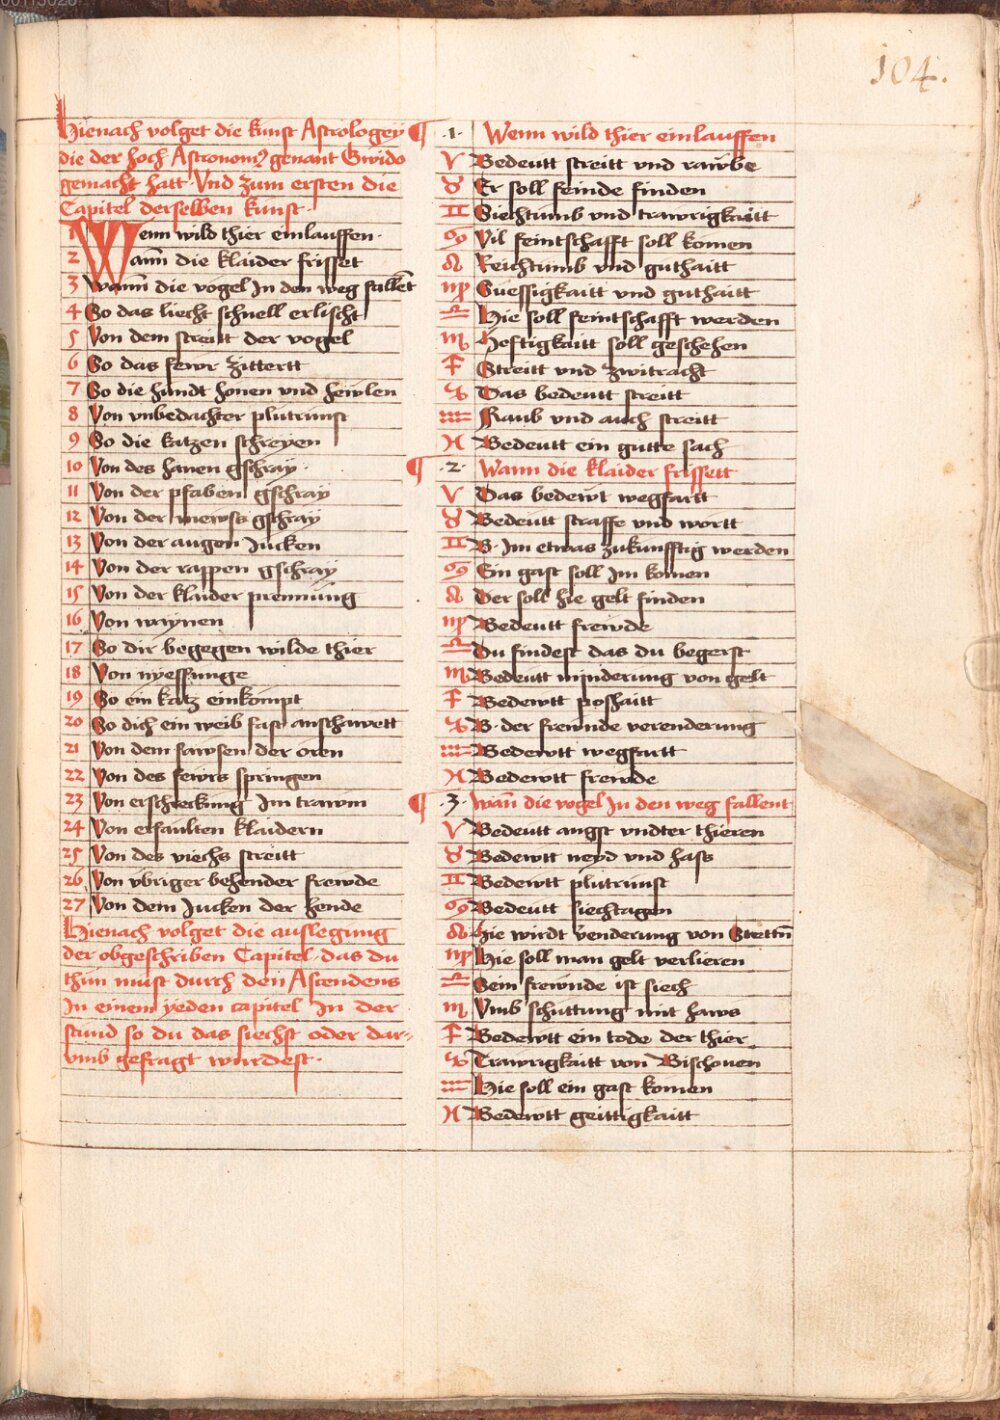 00113028
104.
Hienach volget die kunst Astrologey
die der hoch Astronom9 genant Gwido
gemacht hatt. Vnd zum ersten die
Capitel derselben kunst.
1 Wenn wild thier einlauffen.
2 Wann die klaider frisset
3 Wann die vogel In den weg fallet
4 So das liecht schnell erlischt
5 Von dem streitt der vogel
6 So das fewr zittertt
7 So die hundt honen vnd hewlen
8 Von vnbedachter plutrunst
9 So die katzen schreyen
10 Von des hanen gschray.
11 Von der pfaben gschray
12 Von der mewss gschray
13 Von der augen Jucken
14 Von der rappen gschray
15 Von der klaider prennung
16 Von waynen
17 So dir begegen wilde thier
18 Von nyessunge
19 So ein katz einkompt
20 So dich ein weib fast anschawett
21 Von dem sawsen der oren
22 Von des fewrs springen
23 Von erschreckung Im trawm
24 Von erfaulten klaidern
25 Von des viechs streitt
26 Von vbriger behender frewde
27 Von dem Jucken der hende
Hienach volget die auslegung
der obgeschriben Capitel. das du
thun must durch den Ascendens
In einem yeden capitel In der
stund so du das siechst oder dar-
vmb gefragt wurdest.
¶ .1. Wenn wild thier einlauffen
♈ Bedeutt streitt vnd rawbe
♉ Er soll feinde finden
♊ Siechtumb vnd trawrigkaitt
♋ Vil feintschafft soll komen
♌ Reichtumb vnd guthaitt
♍ Suessigkaitt vnd guthaitt
♎ Hie soll feintschafft werden
♏ Heftigkaitt soll geschehen
♐ Streitt vnd zwitracht
♑ Das bedeutt streitt
♒ Raub vnd auch streitt
♓ Bedeutt ein gutte sach
¶ .2. Wann die klaider frissett
♈ Das bedewt wegfartt
♉ Bedeutt straffe vnd wortt
♊ B. Im etwas zukunfftig werden
♋ Ein gast soll Im komen
♌ Der soll hie gelt finden
♍ Bedeutt frewde
♎ Du findest das du begerst
♏ Bedeutt minderung von gelt
♐ Bedewtt poshaitt
♑ B. der frewnde verenderung
♒ Bedewtt wegfartt
♓ Bedewtt frewde
¶ .3. Wan̄ die vogel In den weg fallent
♈ Bedeutt angst vndter thieren
♉ Bedewtt neyd vnd hass
♊ Bedewtt plutrunst
♋ Bedeutt siechtagen
♌ Hie wirdt venderung von
♍ Hie soll man gelt verlieren
♎ Sein frewnde ist siech
♏ Vmb schuttung mit haws
♐ Bedewtt ein tode der thier
♑ Trawrigkaitt von Bischouen
♒ Hie soll ein gast komen
♓ Bedewtt geittigkaitt